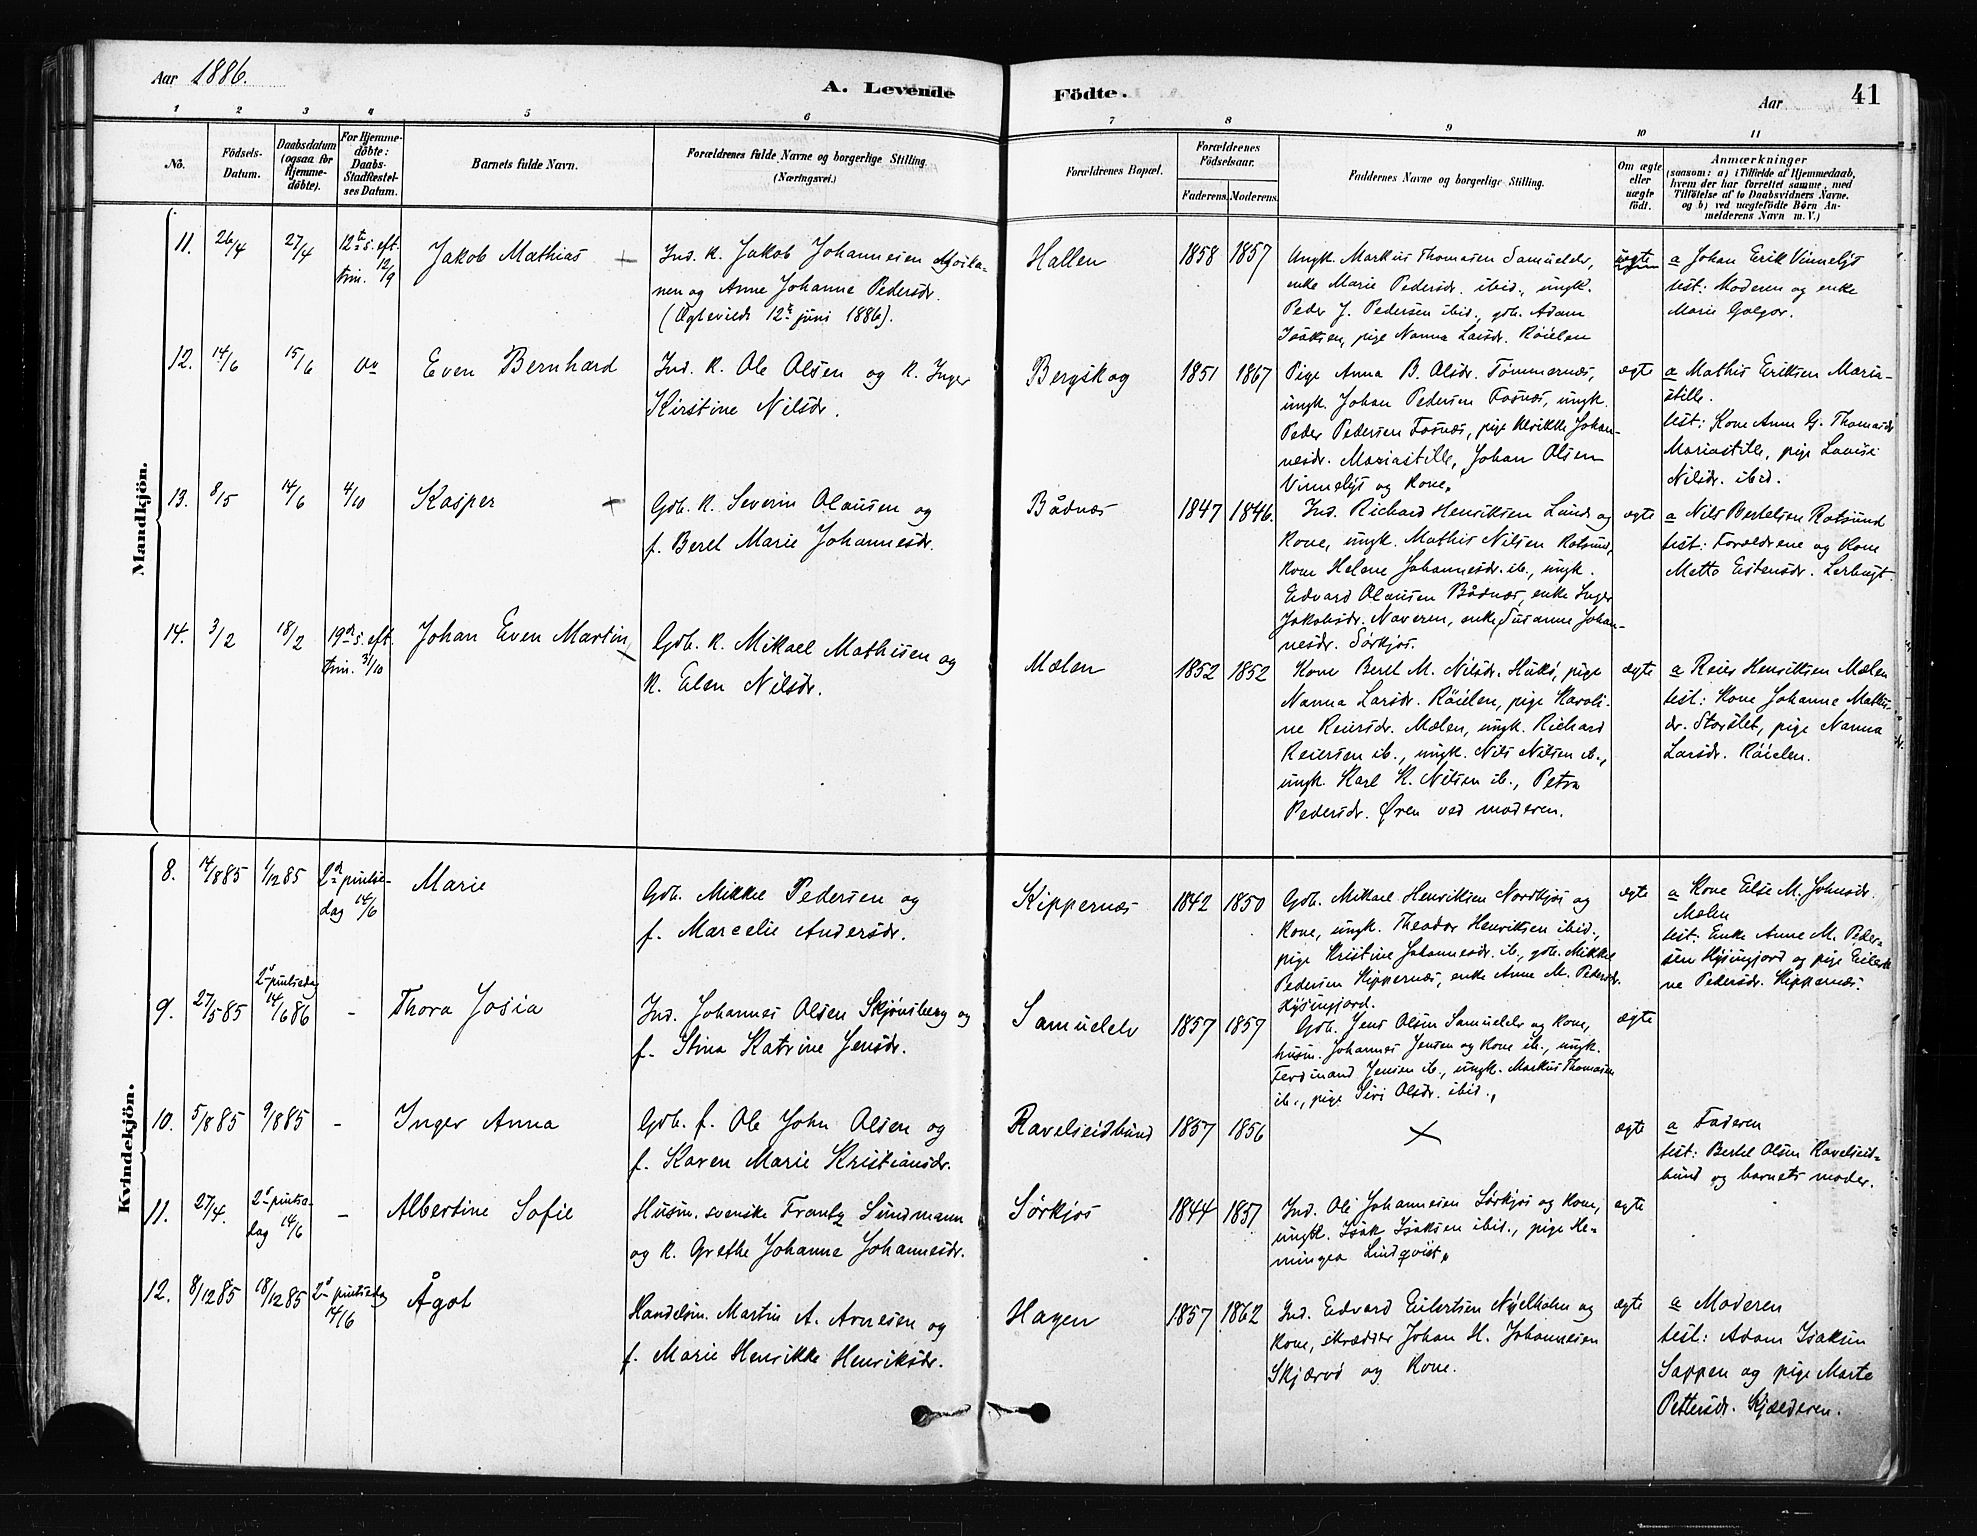 Aar 1886.
A. Levende Födte.
Aar
41
1 2 3 4 5 6 7 8 9 10 11
No.
Födsels-
Datum.
Daabsdatum
(ogsaa for
Hjemme-
döbte).
For Hjemme-
döbte:
Daabs-
Stadfæstel-
ses Datum.
Barnets fulde Navn.
Forældrenes fulde Navne og borgerlige Stilling.
(Næringsvei.)
Forældrenes Bopæl.
Forældrenes
Födselsaar.
Faderens. Moderens.
Faddernes Navne og borgerlige Stilling.
Om ægte
eller
uægte
födt.
Anmærkninger
(saasom: a) i Tilfælde af Hjemmedaab,
hvem der har forrettet samme, med
Tilföielse af to Daabsvidners Navne.
og b) ved uægtefödte Börn An-
melderens Navn m. V.)
Mandkjön.
11. 26/4 27/4 12te s. eft.
trin. 12/9
Jakob Mathias
Ind. K. Jakob Johannesen
nen og Anne Johanne Pedersdr.
(Ægteviede 12te juni 1886).
Hallen 1858 1857
Ungk. Markus Thomasen Samuelelv,
enke Marie Pedersdr. ibid., ungk.
Peder J. Pedersen ibid., gdb. Adam
Isaksen, pige Nanna Larsdr. Röielen
uægte
a Johan Erik Vinnelys
test: Moderen og enke
Marie Galgor.
12. 14/6 15/6
Even Bernhard
Ind. K. Ole Olsen og K. Inger
Kirstine Nilsdr.
Bergskog 1851 1867
Pige Anna B. Olsdr. Tömmernes,
ungk. Johan Pedersen Fosnes, ungk.
Peder Pedersen Fosnes, pige Ulrikke Johan-
nesdr. Mariastille, Johan Olsen
Vinnelys og Kone.
ægte
a Mathis Eriksen Maria-
stille.
test: Kone Anne G. Thomasdr
Mariastille, pige Lovise
Nilsdr. ibid.
13. 8/5 14/6 4/10
Kasper
Gdb. K. Severin Olausen og
f. Beret Marie Johannesdr.
Bådnes 1847 1846.
Ind. Richard Henriksen Lund og
Kone, ungk. Mathis Nilsen Rotsund,
Kone Helene Johannesdr. ib., ungk.
Edvard Olausen Bådnes, enke Inger
Jakobsdr. Naveren, enke Susanne Johan-
nesdr. Sörkjos.
ægte
a Nils Bertelsen Rotsund
test: Forældrene og Kone
Mette Eistensdr. Lerbugt.
14. 3/2 18/2 19de s. eft.
trin. 31/10
Johan Even Martin
Gdb. K. Mikael Mathisen og
K. Elen Nilsdr.
Mælen 1852 1852
Kone Beret M. Nilsdr. Hukö, pige
Nanna Larsdr. Röielen, pige Karoli-
ne Reiersdr. Mælen, ungk. Richard
Reiersen ib., ungk. Nils Nilsen ib.,
ungk. Karl K. Nilsen ib., Petra
Pedersdr. Øren ved moderen.
ægte
a Reier Henriksen Mælen
test: Kone Johanne Mathis-
dr. Storslet, pige Nanna
Larsdr. Röielen.
Kvindekjön.
8. 14/8 85 1/12 85 2den pintse-
dag 14/6
Marie
Gdb. Mikkel Pedersen og
f. Marcelie Andersdr.
Kippernes 1842 1850
Gdb. Mikael Henriksen Nordkjos og
Kone, ungk. Theodor Henriksen ibid.,
pige Kristine Johannesdr. ib., gdb. Mikkel
Pedersen Kippernes, enke Anne M. Pedersdr.
Hysingjord.
ægte
a Kone Else M. Johnsdr.
Mælen
test: Enke Anne M. Peder-
sen Hysingjord og pige Eilert-
ne Pedersdr. Kippernes.
9. 27/5 85 2den pintsedag
14/6 86 -
Thora Josia
Ind. Johannes Olsen Skjönsberg og
f. Stina Katrine Jensdr.
Samuelelv 1857 1859
Gdb. Jens Olsen Samuelelv og Kone,
husm. Johannes Jensen og Kone ib., ungk.
Ferdinand Jensen ib., ungk. Markus Thomasen
ib., pige Siri Olsdr. ibid.
ægte
10. 5/8 85 9/8 85 -
Inger Anna
Gdb. f. Ole John Olsen og
f. Karen Marie Kristiansdr.
Ravelseidbund 1857 1856
ægte
a Faderen
test: Bertel Olsen Ravelseid-
bund og barnets moder.
11. 27/4. 2den pintse-
dag 14/6 -
Albertine Sofie
Husm. svenske Frantz Sundmann
og K. Grethe Johanne Johannesdr.
Sörkjos 1844 1851
Ind. Ole Johannesen Sörkjos og Kone,
ungk. Isak Isaksen ibid., pige He-
mingea Lindqvist.
ægte
12. 8/12 85 18/12 85 2den pintsedag
14/6
Ågot
Handelsm. Martin A. Arnesen og
f. Marie Henrikke Henriksdr.
Hagen 1857 1862
Ind. Edvard Eilertsen Nyelholm og
Kone, skrædder Johan H. Johannesen
Skjærvö og Kone.
ægte
a Moderen
test: Adam Isaksen
Sappen og pige Marte
Pettersdr. Kjælderen.